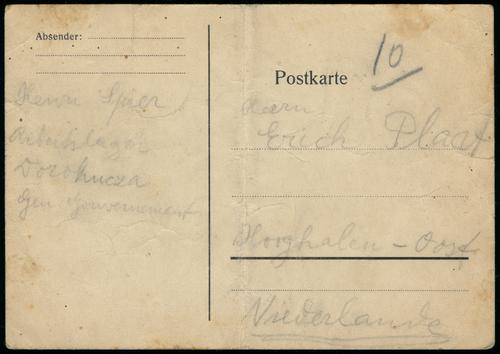 Absender:
Henri Spier
Arbeitslager
Dorohucza
Gen Gouvernement
Postkarte
10
Herrn
Erich Plaat
Hooghalen - Oost
Niederlande